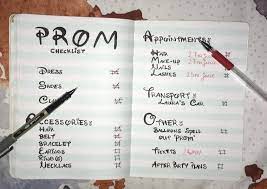 PROM
CHECKLIST
DRESS
SHOES
CL
CCESSORIES:
HAIR
BELT
BRACELET
EARRINGS
RING(S)
NECKLACE
APPOINTMENTS:
HAIR
MAKE-UP
NAILS
LASHES
TRANSPORT:
LAURA'S CAR
OTHER:
BALLOONS SPELL
OUT 'PROM'
TICKETS
AFTER PARTY PLANS